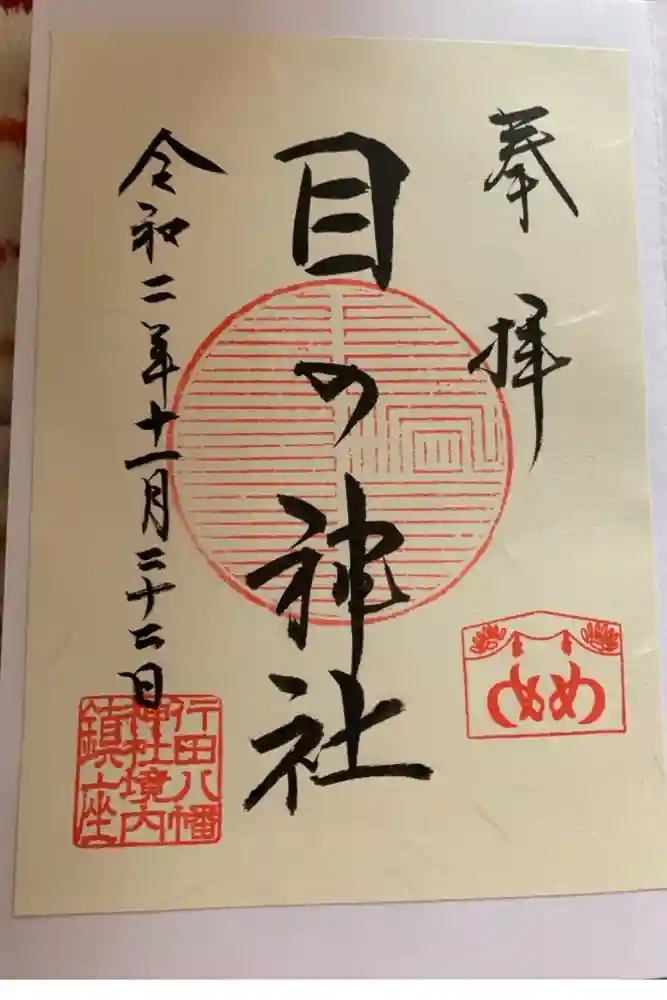 奉拝
目の神社
令和二年十一月二十二日
めめ
行田八幡
神社境内
鎮座